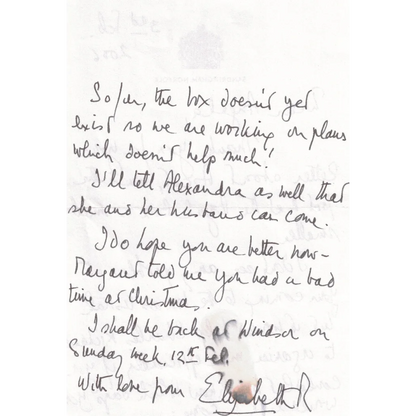 So far, the box doesn't yet
exist so we are working on plans
which doesn't help much!
I'll tell Alexandra as well that
she and her husband can come.
I do hope you are better now –
Margaret told me you had a bad
time at Christmas.
I shall be back at Windsor on
Sunday week, 12th Feb.
With love from Elizabeth R